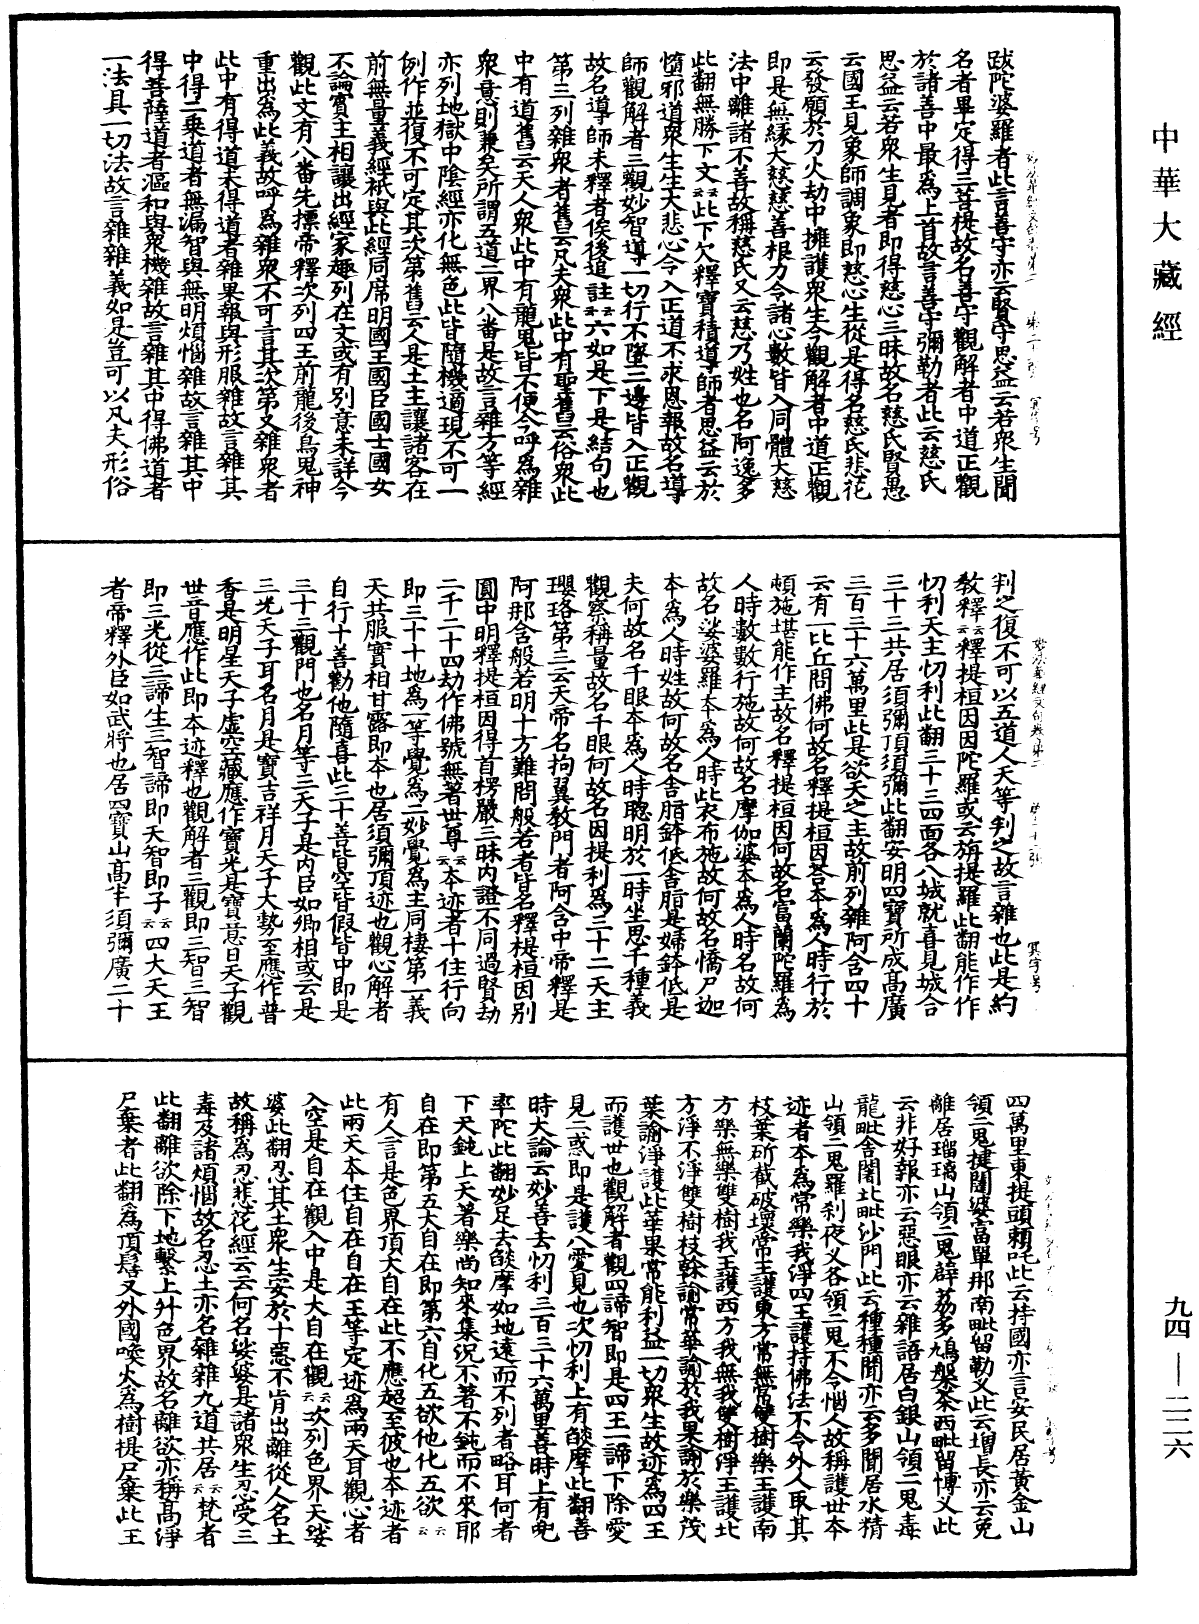 中華大藏經
跋陀婆羅者此言善守亦云賢守思益云若衆生聞
名者畢定得三菩提故名善守觀解者中道正觀
於諸善中最爲上首故言善守彌勒者此云慈氏
思益云若衆生見者即得慈心三昧故名慈氏賢愚
云國王見象師調象即慈心生從是得名慈氏悲花
云發願於刀火劫中擁護衆生今觀解者中道正觀
即是無緣大慈慈善根力令諸心數皆入同體大慈
法中離諸不善故稱慈氏又云慈乃姓也名阿逸多
此翻無勝下文云云此下欠釋寶積導師者思益云於
墮邪道衆生生大悲心令入正道不求恩報故名導
師觀解者三觀妙智導一切行不墜二邊皆入正觀
故名導師未釋者俟後追註云云六如是下是結句也
第三列雜衆者舊云凡夫衆此中有聖舊云俗衆此
中有道舊云天人衆此中有龍鬼皆不便今呼爲雜
衆意則兼矣所謂五道二界八番是故言雜方等經
亦列地獄中陰經亦化無色此皆隨機適現不可一
例作並復不可定其次第舊云人是土主讓諸客在
前無量義經衹與此經同席明國王國臣國士國女
不論賓主相讓出經家趣列在文或有別意未詳今
觀此文有八番先摽帝釋次列四王前龍後鳥鬼神
重出爲此義故呼爲雜衆不可言其次第又雜衆者
此中有得道未得道者雜果報與形服雜故言雜其
中得二乗道者無漏智與無明煩惱雜故言雜其中
得菩薩道者漚和與衆機雜故言雜其中得佛道者
一法具一切法故言雜雜義如是豈可以凡夫形俗
判之復不可以五道人天等判之故言雜也此是約
敎釋云云釋提桓因因陀羅或云旃提羅此翻能作作
忉利天主忉利此翻三十三四面各八城就喜見城合
三十三共居須彌頂須彌此翻安明四寶所成高廣
三百三十六萬里此是欲天之主故前列雜阿含四十
云有一比丘問佛何故名釋提桓因荅本爲人時行於
頓施堪能作主故名釋提桓因何故名富蘭陀羅爲
人時數數行施故何故名摩伽婆本爲人時名故何
故名娑婆羅本爲人時此衣布施故何故名憍尸迦
本爲人時姓故何故名舍脂鉢低舍脂是婦鉢低是
夫何故名千眼本爲人時聰明於一時坐思千種義
觀察稱量故名千眼何故名因提利爲三十二天主
瓔珞第三云天帝名拘翼敎門者阿含中帝釋是
阿那含般若明十方難問般若者皆名釋提桓因別
圓中明釋提桓因得首楞嚴三昧内證不同過賢劫
二千二十四劫作佛號無著世尊云云本迹者十住行向
即三十十地爲一等覺爲二妙覺爲主同棲第一義
天共服實相甘露即本也居須彌頂迹也觀心解者
自行十善勸他隨喜此三十善皆空皆假皆中即是
三十三觀門也名月等三天子是内臣如卿相或云是
三光天子耳名月是寶吉祥月天子大勢至應作普
香是明星天子虛空藏應作寶光是寶意日天子觀
世音應作此即本迹釋也觀解者三觀即三智三智
即三光從三諦生三智諦即天智即子云云四大天王
者帝釋外臣如武將也居四寶山高半須彌廣二十
四萬里東提頭賴吒此云持國亦言安民居黃金山
領二鬼揵闥婆富單那南毗留勒叉此云増長亦云免
離居瑠璃山領二鬼薜荔多鳩槃荼西毗留博叉此
云非好報亦云惡眼亦云雜語居白銀山領二鬼毒
龍毗舍闍北毗沙門此云種種聞亦云多聞居水精
山領二鬼羅刹夜叉各領二鬼不令惱人故稱護世本
迹者本爲常樂我淨四王護持佛法不令外人取其
枝葉斫截破壞常王護東方常無常雙樹樂王護南
方樂無樂雙樹我王護西方我無我雙樹淨王護北
方淨不淨雙樹枝幹諭常華諭於我果諭於樂茂
葉諭淨護此華果常能利益一切衆生故迹爲四王
而護世也觀解者觀四諦智即是四王一諦下除愛
見二惑即是護八愛見也次忉利上有㷿摩此翻善
時大論云妙善去忉利三百三十六萬里善時上有兜
率陀此翻妙足去㷿摩如地遠而不列者略耳何者
下天鈍上天著樂尚知來集況不著不鈍而不來耶
自在即第五大自在即第六自化五欲他化五欲云云
有人言是色界頂大自在此不應超至彼也本迹者
此兩天本住自在自在王等定迹爲兩天耳觀心者
入空是自在觀入中是大自在觀云云次列色界天娑
婆此翻忍其土衆生安於十惡不肯出離從人名土
故稱爲忍悲花經云云何名娑婆是諸衆生忍受三
毒及諸煩惱故名忍土亦名雜雜九道共居云云梵者
此翻離欲除下地繫上升色界故名離欲亦稱高淨
尸棄者此翻爲頂髻又外國喚火爲樹提尸棄此王
九四—二二六